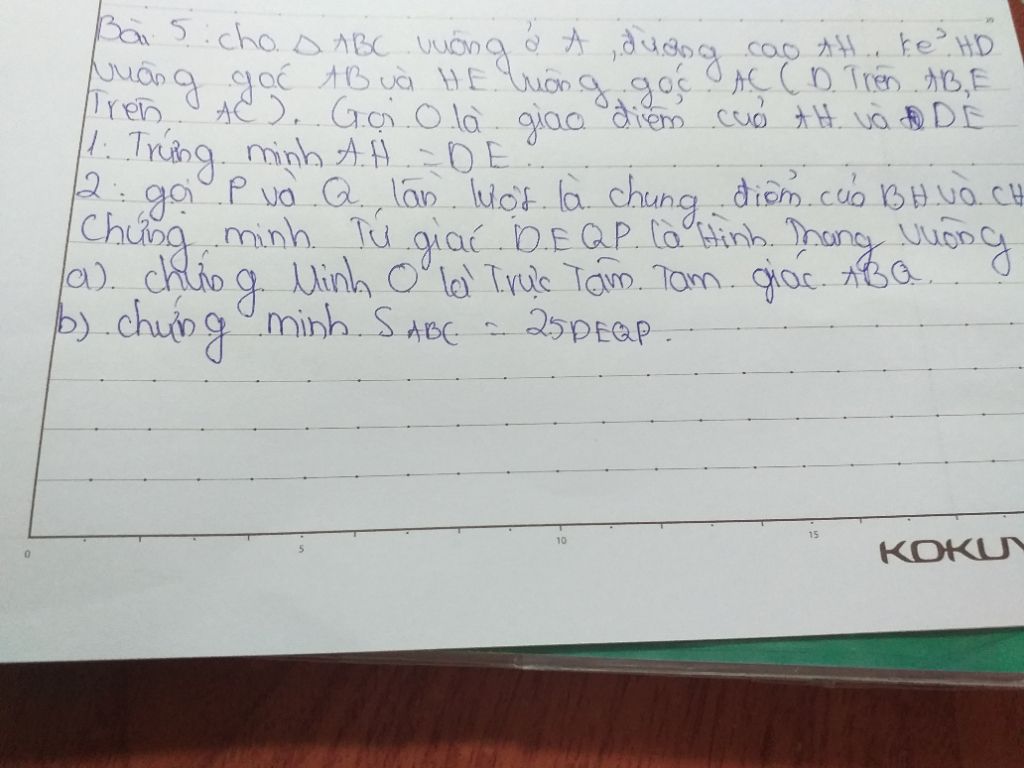 Bài 5: cho Δ ABC vuông ở A, đường cao AH. Kẻ HD
vuông góc AB và HE vuông góc AC (D Trên AB, E
Trên AC). Gọi O là giao điểm của AH và DE
1. Trứng minh AH = DE
2: gọi P và Q lần lượt là chung điểm của BH và CH
Chứng minh Tứ giác DEQP là Hình Thang vuông
a) chứng Minh O là Trực Tâm Tam giác ABQ.
b) chứng minh S ABC = 2SDEQP.
0 5 10 15
KOKUY